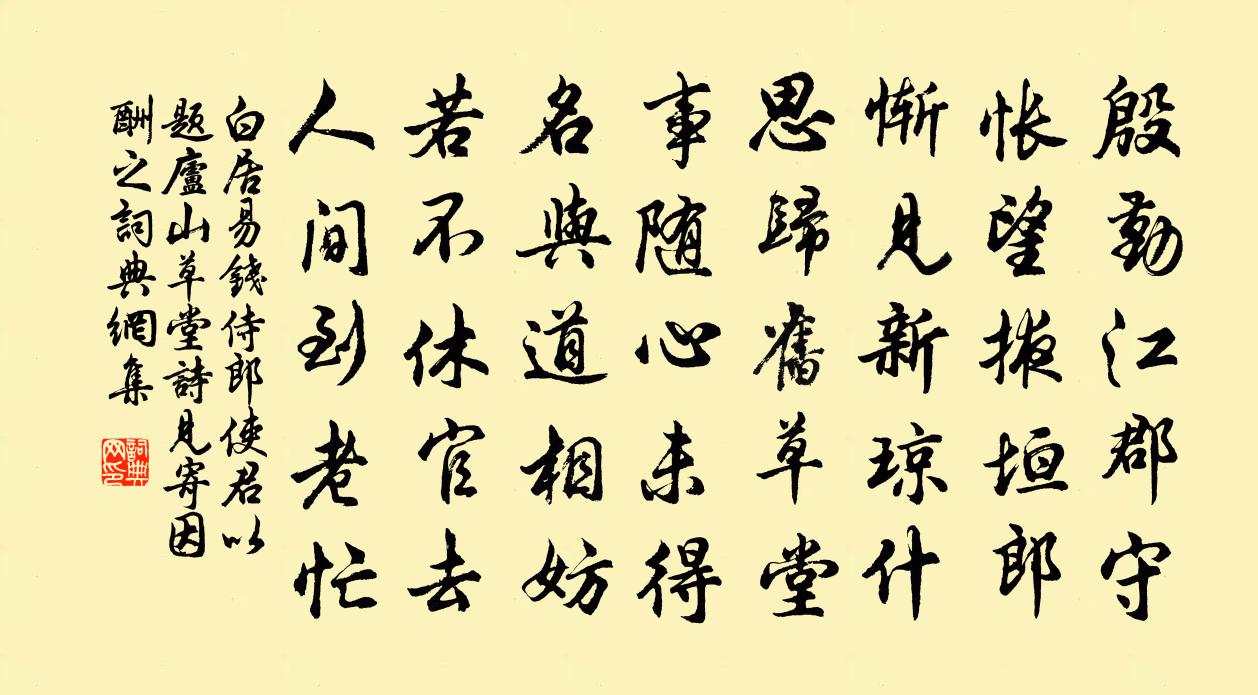 殷勤江郡守
悵望掖垣郎
慚見新琼什
思歸舊草堂
事随心未得
名與道相妨
若不休官去
人间到老忙
白居易錢侍郎使君以
题廬山草堂詩見寄因
酬之詞典網集
詞典
网印